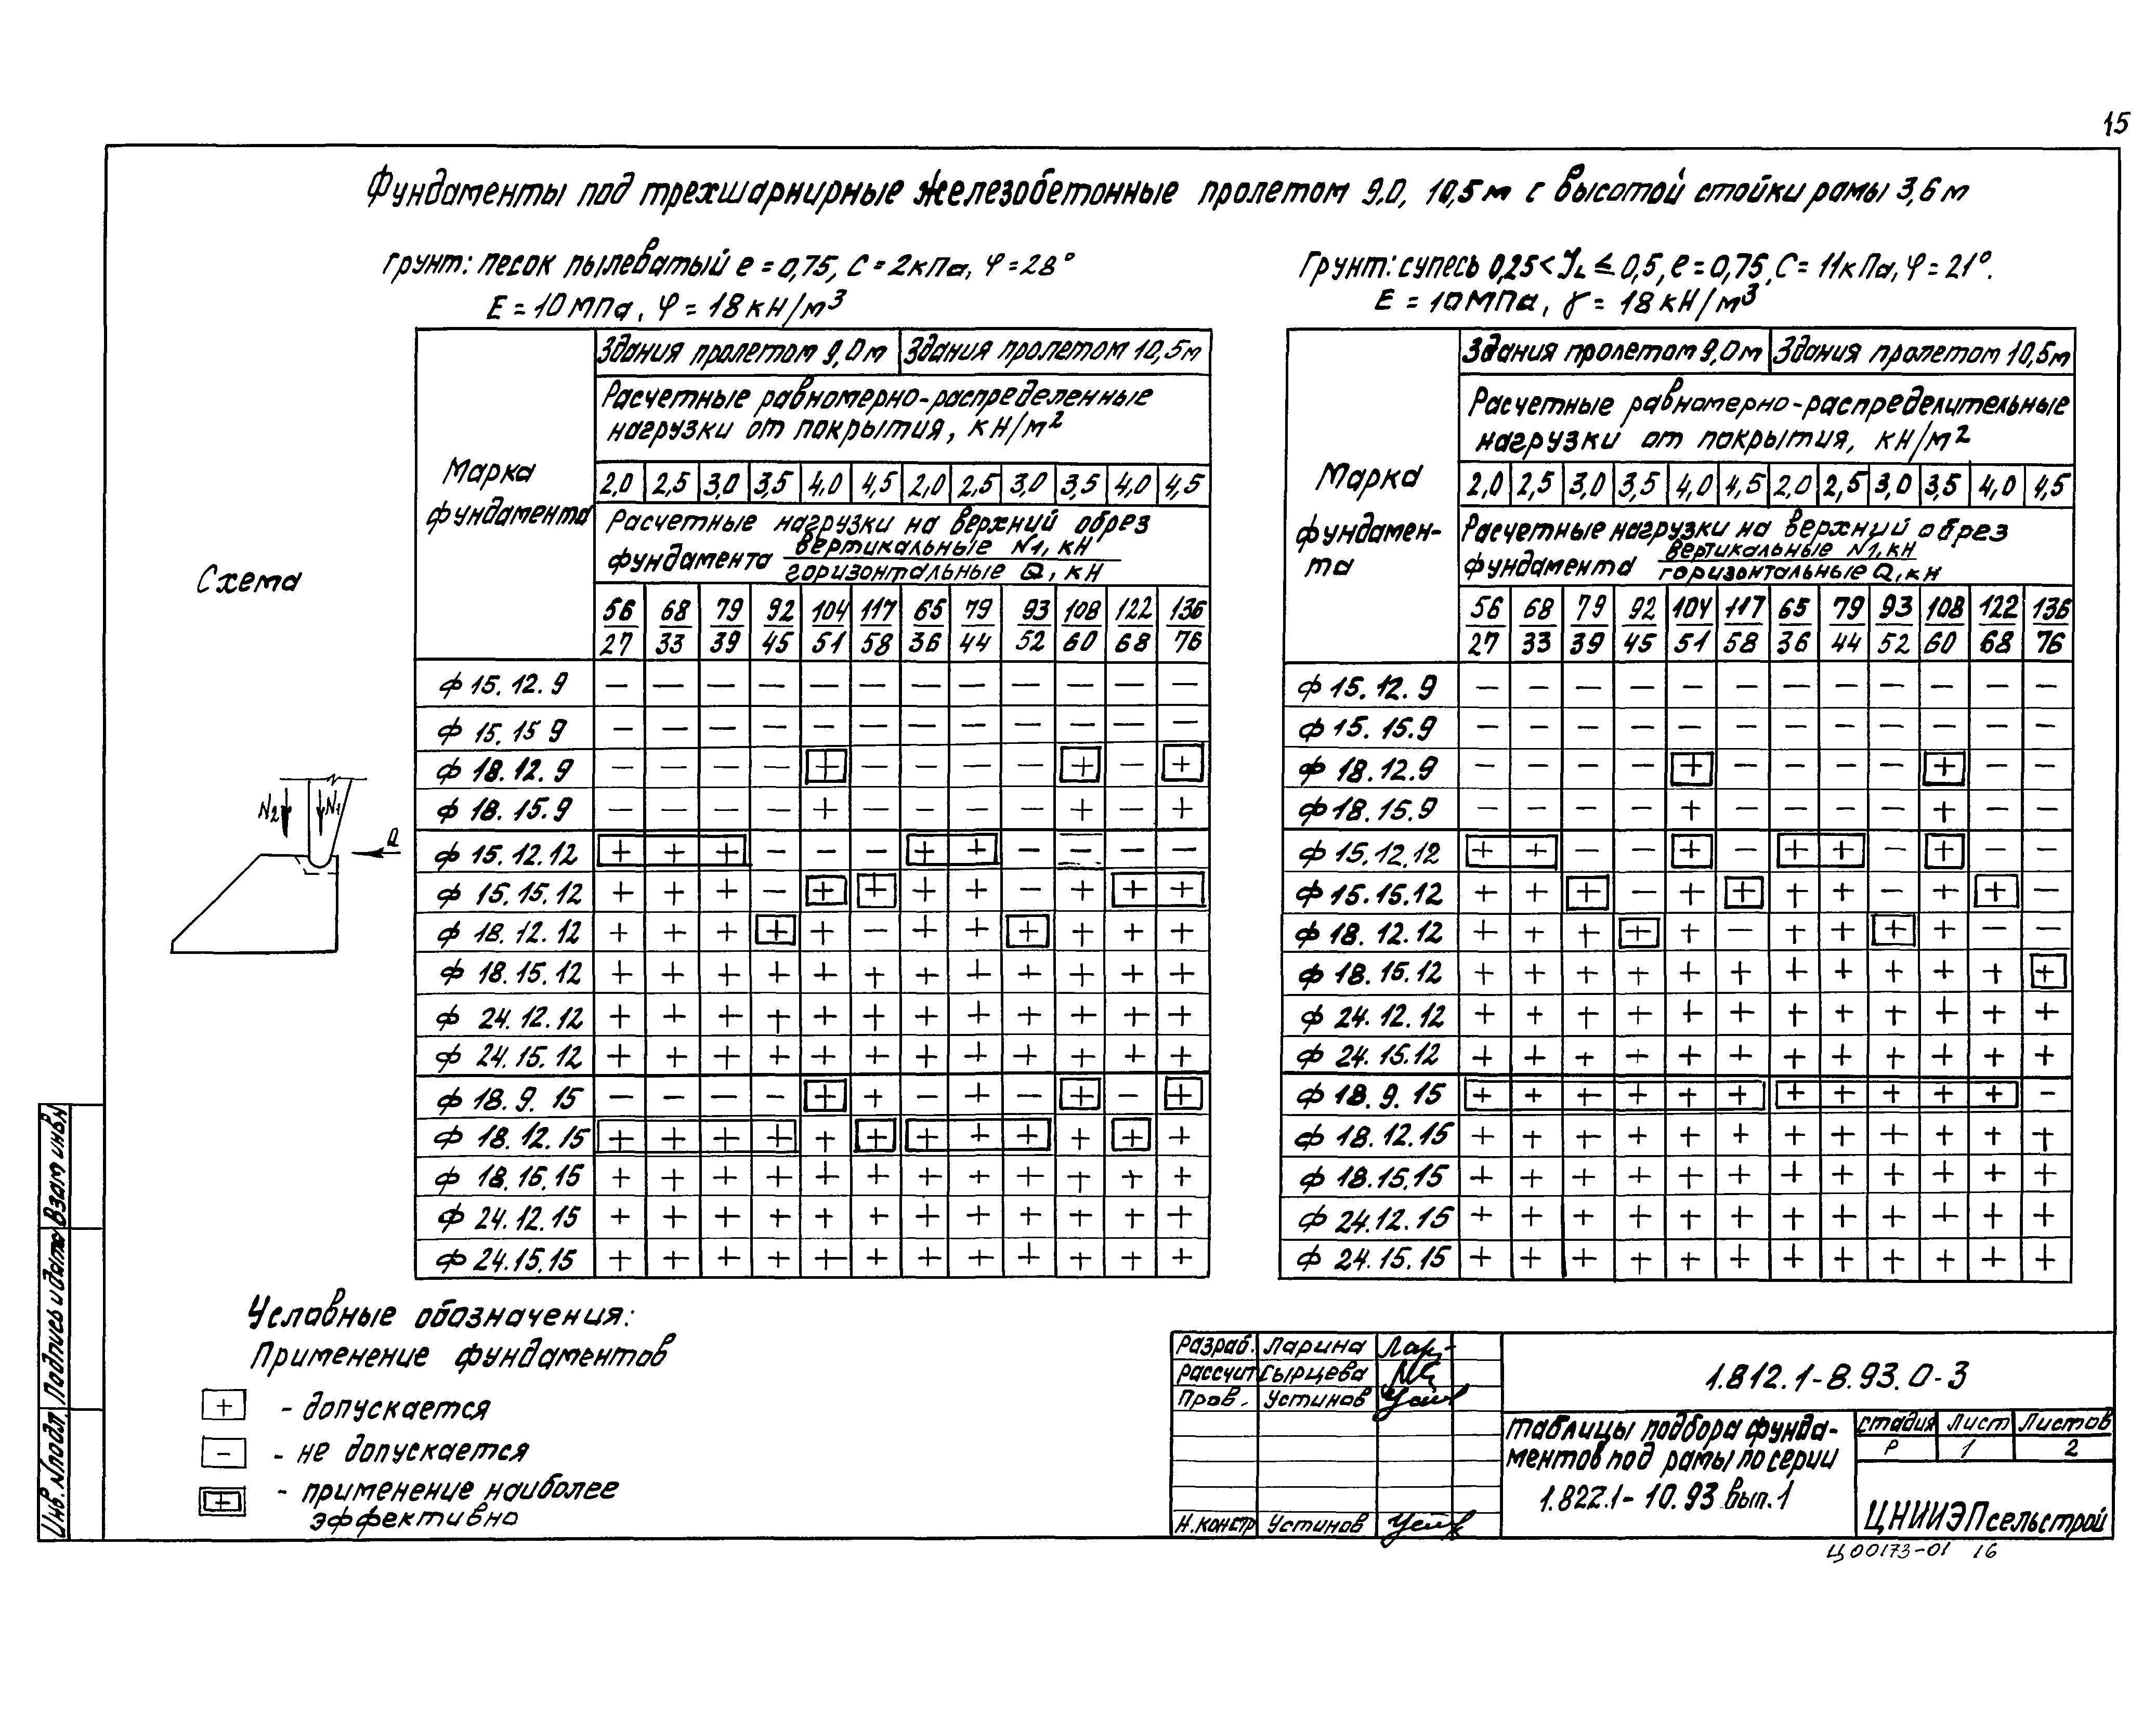 15
Фундаменты под трехшарнирные железобетонные пролетом 9.0, 10,5м с высотой стойки рамы 3,6м
Грунт: песок пылеватый е=0,75, С=2кПа, φ=28°
Е=10МПа, φ=18кН/м³
Грунт: супесь 0,25<JL≤0,5, е=0,75, С=11кПа, φ=21°.
Е=10МПа, γ=18кН/м³
Схема
N2 N1 Q
Марка фундамента
Здания пролетом 9,0м Здания пролетом 10,5м
Расчетные равномерно-распределенные
нагрузки от покрытия, кН/м²
2,0 2,5 3,0 3,5 4,0 4,5 2,0 2,5 3,0 3,5 4,0 4,5
Расчетные нагрузки на верхний обрез
фундамента вертикальные N1, кН
горизонтальные Q, кН
56 68 79 92 104 117 65 79 93 108 122 136
27 33 39 45 51 58 36 44 52 60 68 76
ф 15.12.9 – – – – – – – – – – – –
ф 15.15 9 – – – – – – – – – – – –
ф 18.12.9 – – – – + – – – – + – +
ф 18.15.9 – – – – + – – – – + – +
ф 15.12.12 + + + – – – + + – – – –
ф 15.15.12 + + + – + + + + – + + +
ф 18.12.12 + + + + + – + + + + + +
ф 18.15.12 + + + + + + + + + + + +
ф 24.12.12 + + + + + + + + + + + +
ф 24.15.12 + + + + + + + + + + + +
ф 18.9.15 – – – – + + – + – + – +
ф 18.12.15 + + + + + + + + + + + +
ф 18.15.15 + + + + + + + + + + + +
ф 24.12.15 + + + + + + + + + + + +
ф 24.15.15 + + + + + + + + + + + +
Марка фундамен-
та
Здания пролетом 9,0м Здания пролетом 10,5м
Расчетные равномерно-распределительные
нагрузки от покрытия, кН/м²
2,0 2,5 3,0 3,5 4,0 4,5 2,0 2,5 3,0 3,5 4,0 4,5
Расчетные нагрузки на верхний обрез
фундамента вертикальные N1, кН
горизонтальные Q, кН
56 68 79 92 104 117 65 79 93 108 122 136
27 33 39 45 51 58 36 44 52 60 68 76
ф 15.12.9 – – – – – – – – – – – –
ф 15.15.9 – – – – – – – – – – – –
ф 18.12.9 – – – – + – – – – + – –
ф 18.15.9 – – – – + – – – – + – –
ф 15.12.12 + + – – + – + + – + – –
ф 15.15.12 + + + – + + + + – + + –
ф 18.12.12 + + + + + – + + + + – –
ф 18.15.12 + + + + + + + + + + + +
ф 24.12.12 + + + + + + + + + + + +
ф 24.15.12 + + + + + + + + + + + +
ф 18.9.15 + + + + + + + + + + + –
ф 18.12.15 + + + + + + + + + + + +
ф 18.15.15 + + + + + + + + + + + +
ф 24.12.15 + + + + + + + + + + + +
ф 24.15.15 + + + + + + + + + + + +
Условные обозначения:
Применение фундаментов
+ - допускается
- - не допускается
+ - применение наиболее
эффективно
Инв. № подл. Подпись и дата Взам инв.№
Разраб. Ларина
Рассчит Сырцева
Пров. Устинов
Н.контр Устинов
1.812.1-8.93.0-3
таблицы подбора фунда-
ментов под рамы по серии
1.822.1-10.93 вып.1
Стадия Лист Листов
Р 1 2
ЦНИИЭПсельстрой
Ц00173-01 16